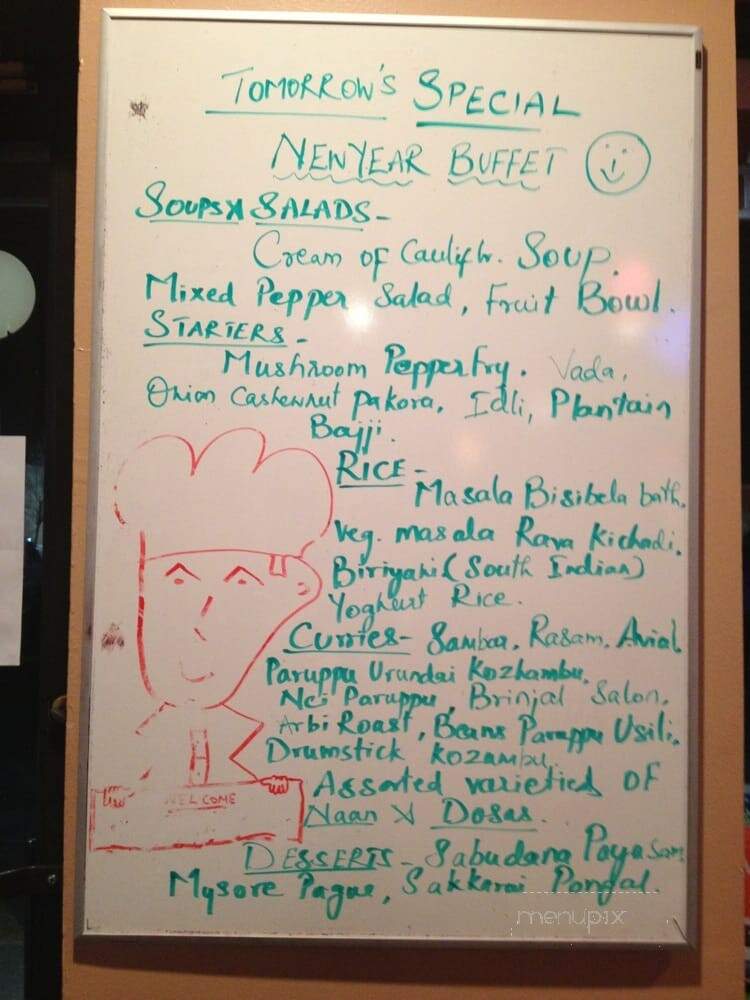 TOMORROW'S SPECIAL
NEW YEAR BUFFET
SOUPS & SALADS -
Cream of Cauliflr. Soup.
Mixed Pepper Salad, Fruit Bowl.
STARTERS -
Mushroom Pepper fry. Vada,
Onion Cashewnut Pakora, Idli, Plantain
Bajji.
RICE -
Masala Bisibela bath,
Veg. masala Rava Kichadi,
Biriyani (South Indian)
Yoghurt Rice.
Curries - Sambar, Rasam, Avial
Paruppu Urundai Kozhambu,
Nei Paruppu, Brinjal Salon,
Arbi Roast, Beans Paruppu Usili,
Drumstick Kozambu,
Assorted varieties OF
WELCOME
Naan & Dosas.
DESSERTS - Sabudana Payasam
Mysore Pague, Sakkarai Pongal.
menupix